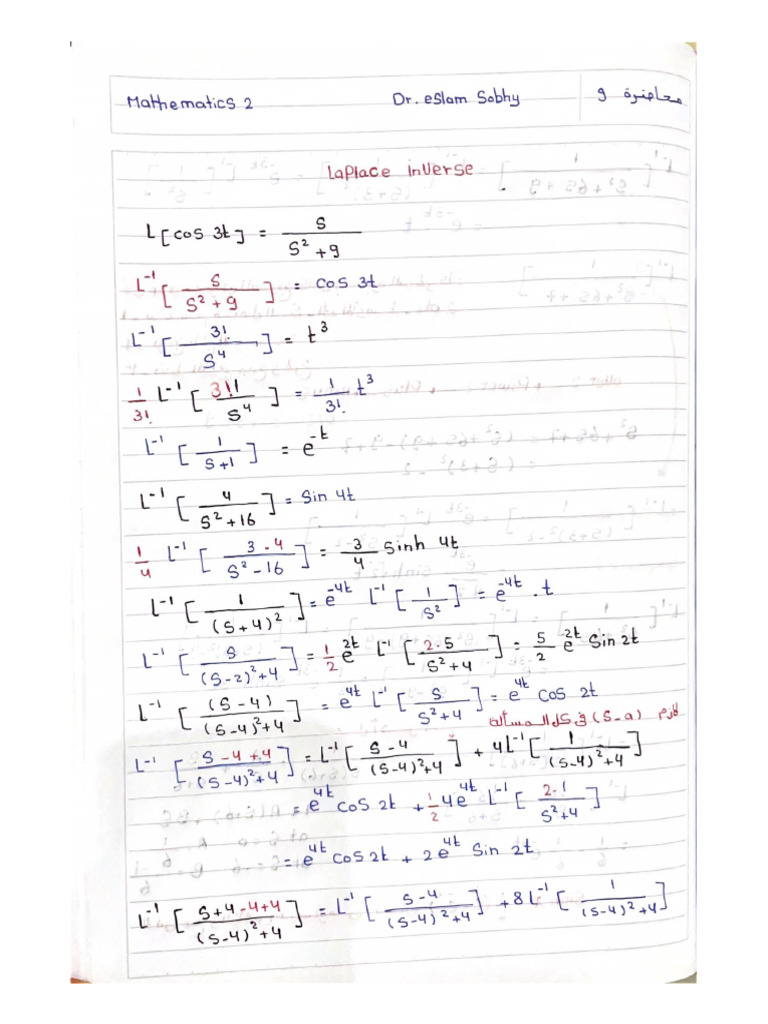 Mathematics 2 Dr. eslam Sobhy محاضرة 9
Laplace inverse
L[cos 3t] = s / (s² + 9)
L⁻¹[s / (s² + 9)] = cos 3t
L⁻¹[3! / s⁴] = t³
1/3! L⁻¹[3!1 / s⁴] = 1/3! t³
L⁻¹[1 / (s+1)] = e^(-t)
L⁻¹[4 / (s² + 16)] = sin 4t
1/4 L⁻¹[3·4 / (s² - 16)] = 3/4 sinh 4t
L⁻¹[1 / (s+4)²] = e^(-4t) L⁻¹[1 / s²] = e^(-4t) . t
L⁻¹[5 / ((s-2)² + 4)] = 1/2 e^(2t) L⁻¹[2·5 / (s² + 4)] = 5/2 e^(2t) sin 2t
L⁻¹[(s-4) / ((s-4)² + 4)] = e^(4t) L⁻¹[s / (s² + 4)] = e^(4t) cos 2t
لازم (s-a) في كل المسألة
L⁻¹[(s - 4 + 4) / ((s-4)² + 4)] = L⁻¹[(s-4) / ((s-4)² + 4)] + 4L⁻¹[1 / ((s-4)² + 4)]
= e^(4t) cos 2t + 1/2 4e^(4t) L⁻¹[2·1 / (s² + 4)]
= e^(4t) cos 2t + 2e^(4t) sin 2t
L⁻¹[(s+4-4+4) / ((s-4)² + 4)] = L⁻¹[(s-4) / ((s-4)² + 4)] + 8L⁻¹[1 / ((s-4)² + 4)]